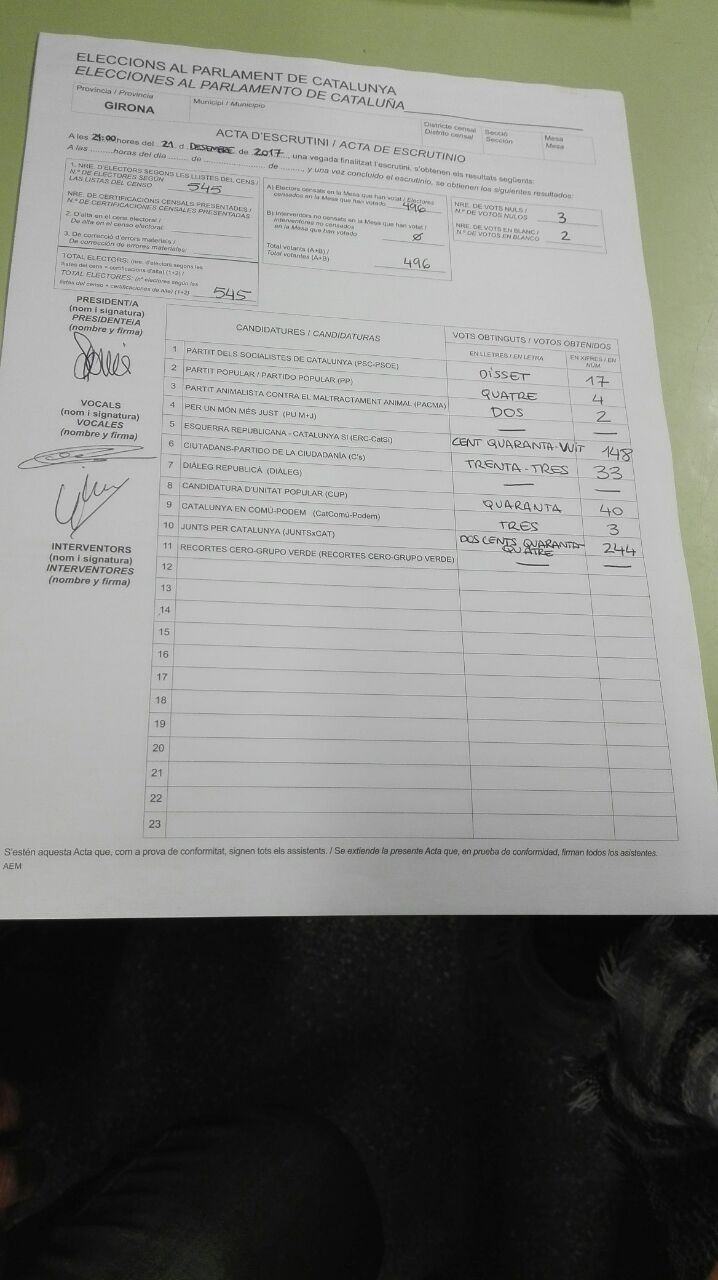 ELECCIONS AL PARLAMENT DE CATALUNYA
ELECCIONES AL PARLAMENTO DE CATALUÑA
Província / Provincia
GIRONA
Municipi / Municipio
Districte censal
Distrito censal
Secció
Sección
Mesa
Mesa
ACTA D'ESCRUTINI / ACTA DE ESCRUTINIO
A les 21:00 hores del 21 d DESEMBRE de 2017, una vegada finalitzat l'escrutini, s'obtenen els resultats següents:
A las ........horas del día ....... de .................... de ........, y una vez concluido el escrutinio, se obtienen los siguientes resultados:
1. NRE. D'ELECTORS SEGONS LES LLISTES DEL CENS /
N.º DE ELECTORES SEGÚN
LAS LISTAS DEL CENSO
545
NRE. DE CERTIFICACIONS CENSALS PRESENTADES /
N.º DE CERTIFICACIONES CENSALES PRESENTADAS
2. D'alta en el cens electoral /
De alta en el censo electoral:
3. De correcció d'errors materials /
De corrección de errores materiales:
TOTAL ELECTORS: (nre. d'electors segons les
llistes del cens + certificacions d'alta) (1+2) /
TOTAL ELECTORES: (nº electores según las
listas del censo + certificaciones de alta) (1+2)
545
A) Electors censats en la Mesa que han votat / Electores
censados en la Mesa que han votado
496
B) Interventors no censats en la Mesa que han votat /
Interventores no censados
en la Mesa que han votado
Ø
Total votants (A+B) /
Total votantes (A+B)
496
NRE. DE VOTS NULS /
N.º DE VOTOS NULOS
3
NRE. DE VOTS EN BLANC /
N.º DE VOTOS EN BLANCO
2
PRESIDENT/A
(nom i signatura)
PRESIDENTE/A
(nombre y firma)
VOCALS
(nom i signatura)
VOCALES
(nombre y firma)
INTERVENTORS
(nom i signatura)
INTERVENTORES
(nombre y firma)
CANDIDATURES / CANDIDATURAS
VOTS OBTINGUTS / VOTOS OBTENIDOS
EN LLETRES / EN LETRA
EN XIFRES / EN NÚM.
1 PARTIT DELS SOCIALISTES DE CATALUNYA (PSC-PSOE) DISSET 17
2 PARTIT POPULAR / PARTIDO POPULAR (PP) QUATRE 4
3 PARTIT ANIMALISTA CONTRA EL MALTRACTAMENT ANIMAL (PACMA) DOS 2
4 PER UN MÓN MÉS JUST (PUM+J) — —
5 ESQUERRA REPUBLICANA - CATALUNYA SÍ (ERC-CatSí) CENT QUARANTA-VUIT 148
6 CIUTADANS-PARTIDO DE LA CIUDADANÍA (C's) TRENTA-TRES 33
7 DIÀLEG REPUBLICÀ (DIÀLEG) — —
8 CANDIDATURA D'UNITAT POPULAR (CUP) QUARANTA 40
9 CATALUNYA EN COMÚ-PODEM (CatComú-Podem) TRES 3
10 JUNTS PER CATALUNYA (JUNTSxCAT) DOSCENTS QUARANTA-QUATRE 244
11 RECORTES CERO-GRUPO VERDE (RECORTES CERO-GRUPO VERDE) — —
12
13
14
15
16
17
18
19
20
21
22
23
S'estén aquesta Acta que, com a prova de conformitat, signen tots els assistents. / Se extiende la presente Acta que, en prueba de conformidad, firman todos los asistentes.
AEM